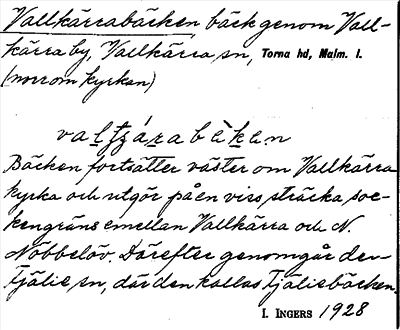 Vallkärrabäcken bäck genom Vall-
kärra by, Vallkärra sn, Torna hd, Malm. l.
(norr om kyrkan)
Bäcken fortsätter väster om Vallkärra
kyrka och utgör på en viss sträcka soc-
kengräns emellan Vallkärra och N.
Nöbbelöv. Därefter genomgår den
Fjälie sn, där den kallas Fjäliebäcken.
I. INGERS 1928